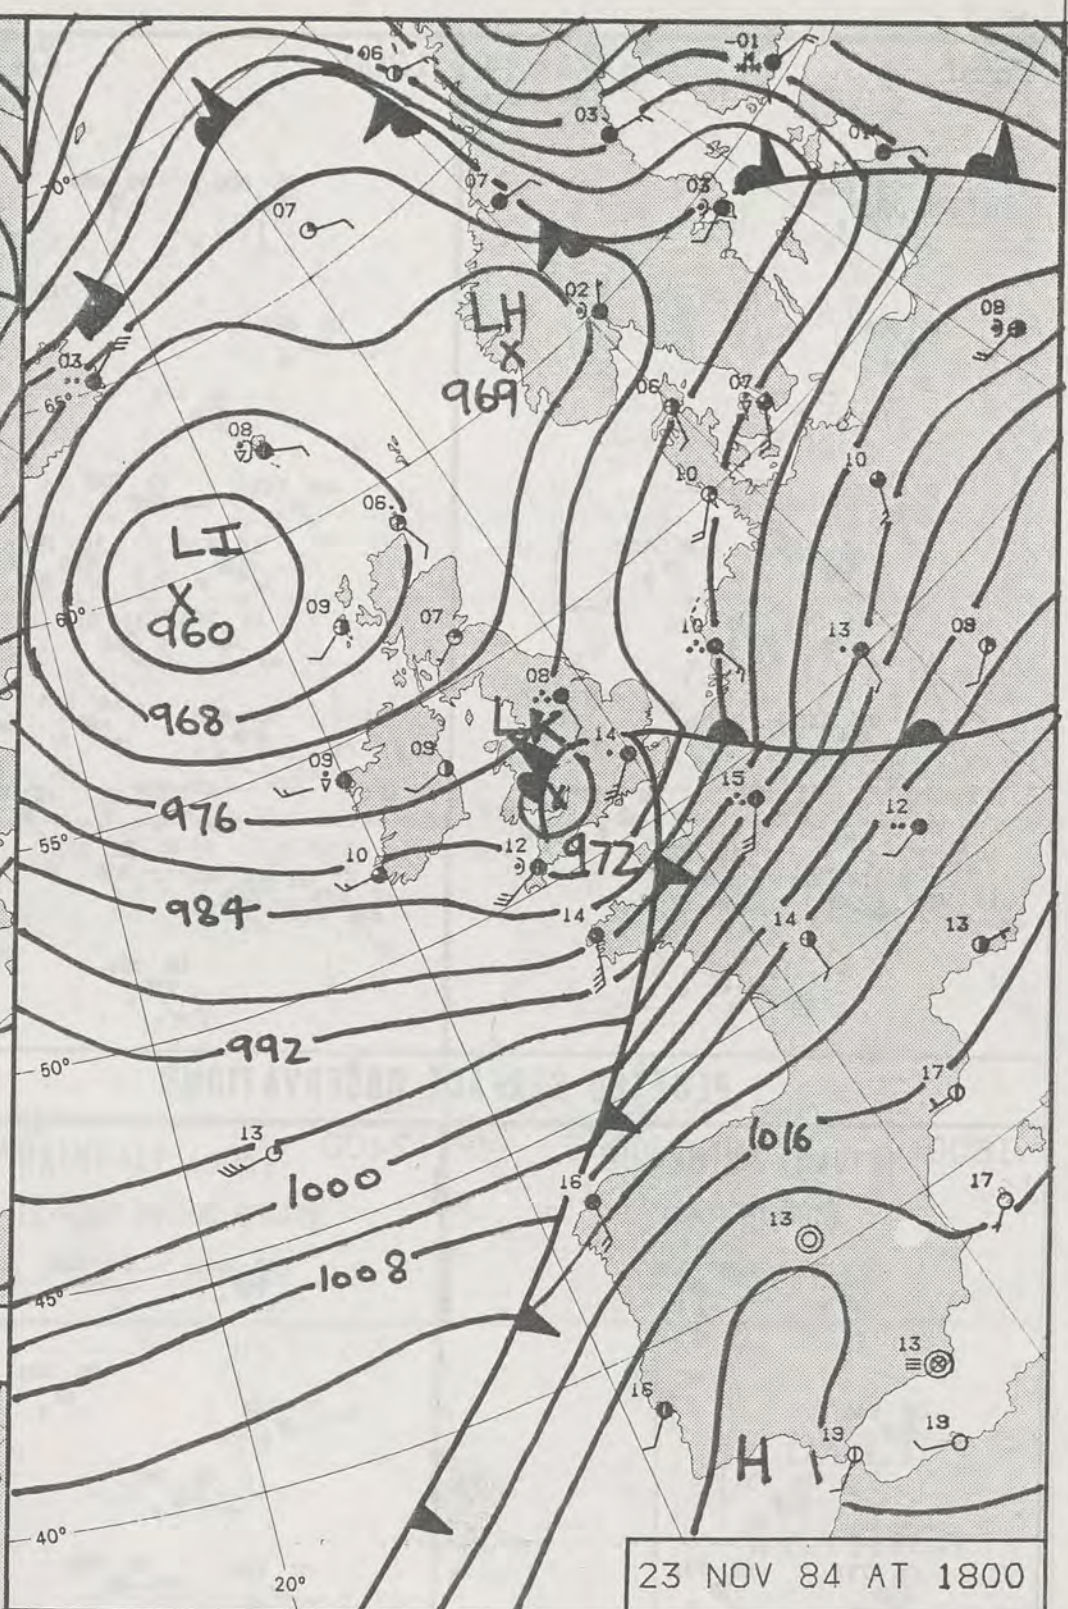 06
-01
03
01
07
03
70°
07
LH
02
08
969
03
65°
06
07
08
10
10
06
LI
60°
960
09
07
10
13
09
08
968
LK
14
09
09
15
12
976
972
55°
12
10
984
14
14
13
992
50°
17
1016
13
1000
16
17
13
1008
45°
13
16
19
19
H
40°
20°
23 NOV 84 AT 1800